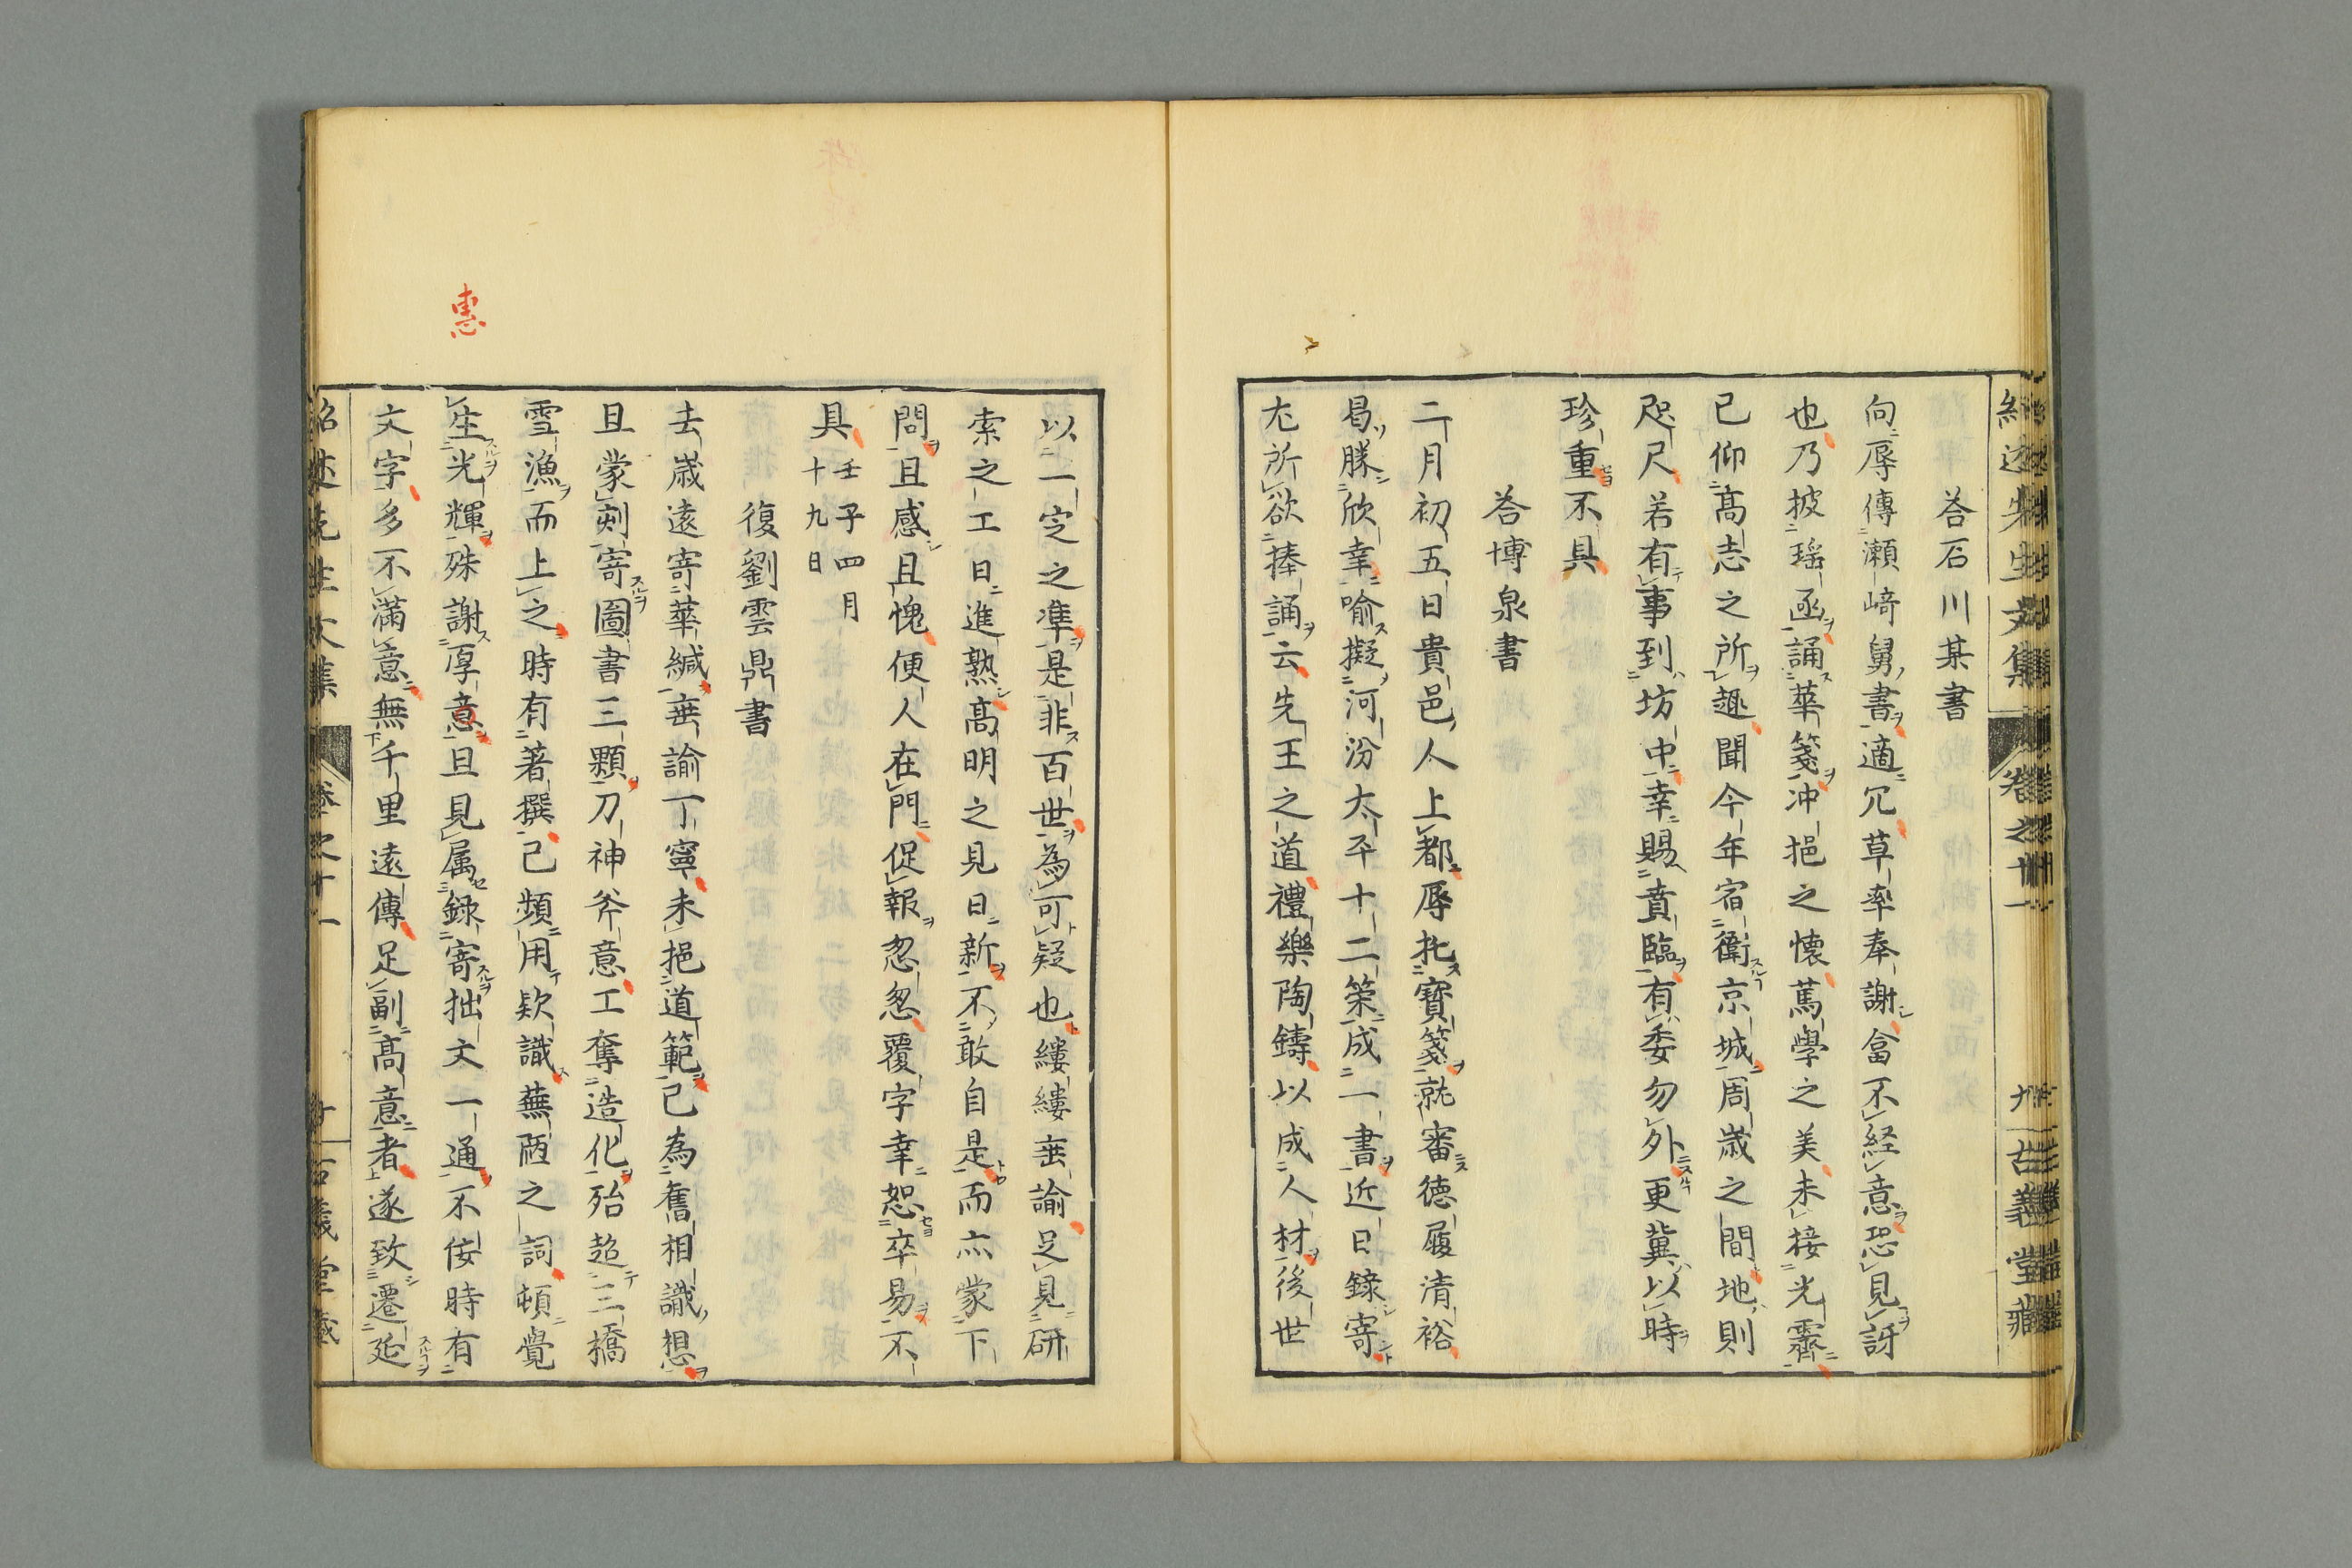 紹述先生文集 卷之十一 古義堂藏
荅石川某書
向辱傳瀬﨑舅書適冗草率奉謝畣不経意恐見訝
也乃披瑶函誦華箋冲挹之懐蔫學之美未接光霽
已仰髙志之所趣聞今年宿衞京城周歳之間地則
咫尺若有事到坊中幸賜賁臨有委勿外更冀以時
珍重不具
荅博泉書
二月初五日貴邑人上都辱托寳箋就審德履清裕
曷勝欣幸喻擬河汾太平十二策成一書近日録寄
尤所欲捧誦云先王之道禮樂陶鑄以成人材後世
以一定之凖是非百世為可疑也縷縷垂諭足見研
索之工日進熟髙明之見日新不敢自是而亦蒙下
問且感且愧便人在門促報忽忽覆字幸恕卒易不
具 壬子四月十九日
復劉雲鼎書
去歳遠寄華緘垂諭丁寧未挹道範已為舊相識想
且蒙剡寄圖書三顆刀神斧意工奪造化殆超三橋
雪漁而上之時有著撰已頻用欵識蕪陋之詞頓覺
生光輝殊謝厚意且見属録寄拙文一通不佞時有
文字多不滿意無千里遠傳足副髙意者遂致遷延
惠
紹述先生文集 卷之十一 古義堂藏